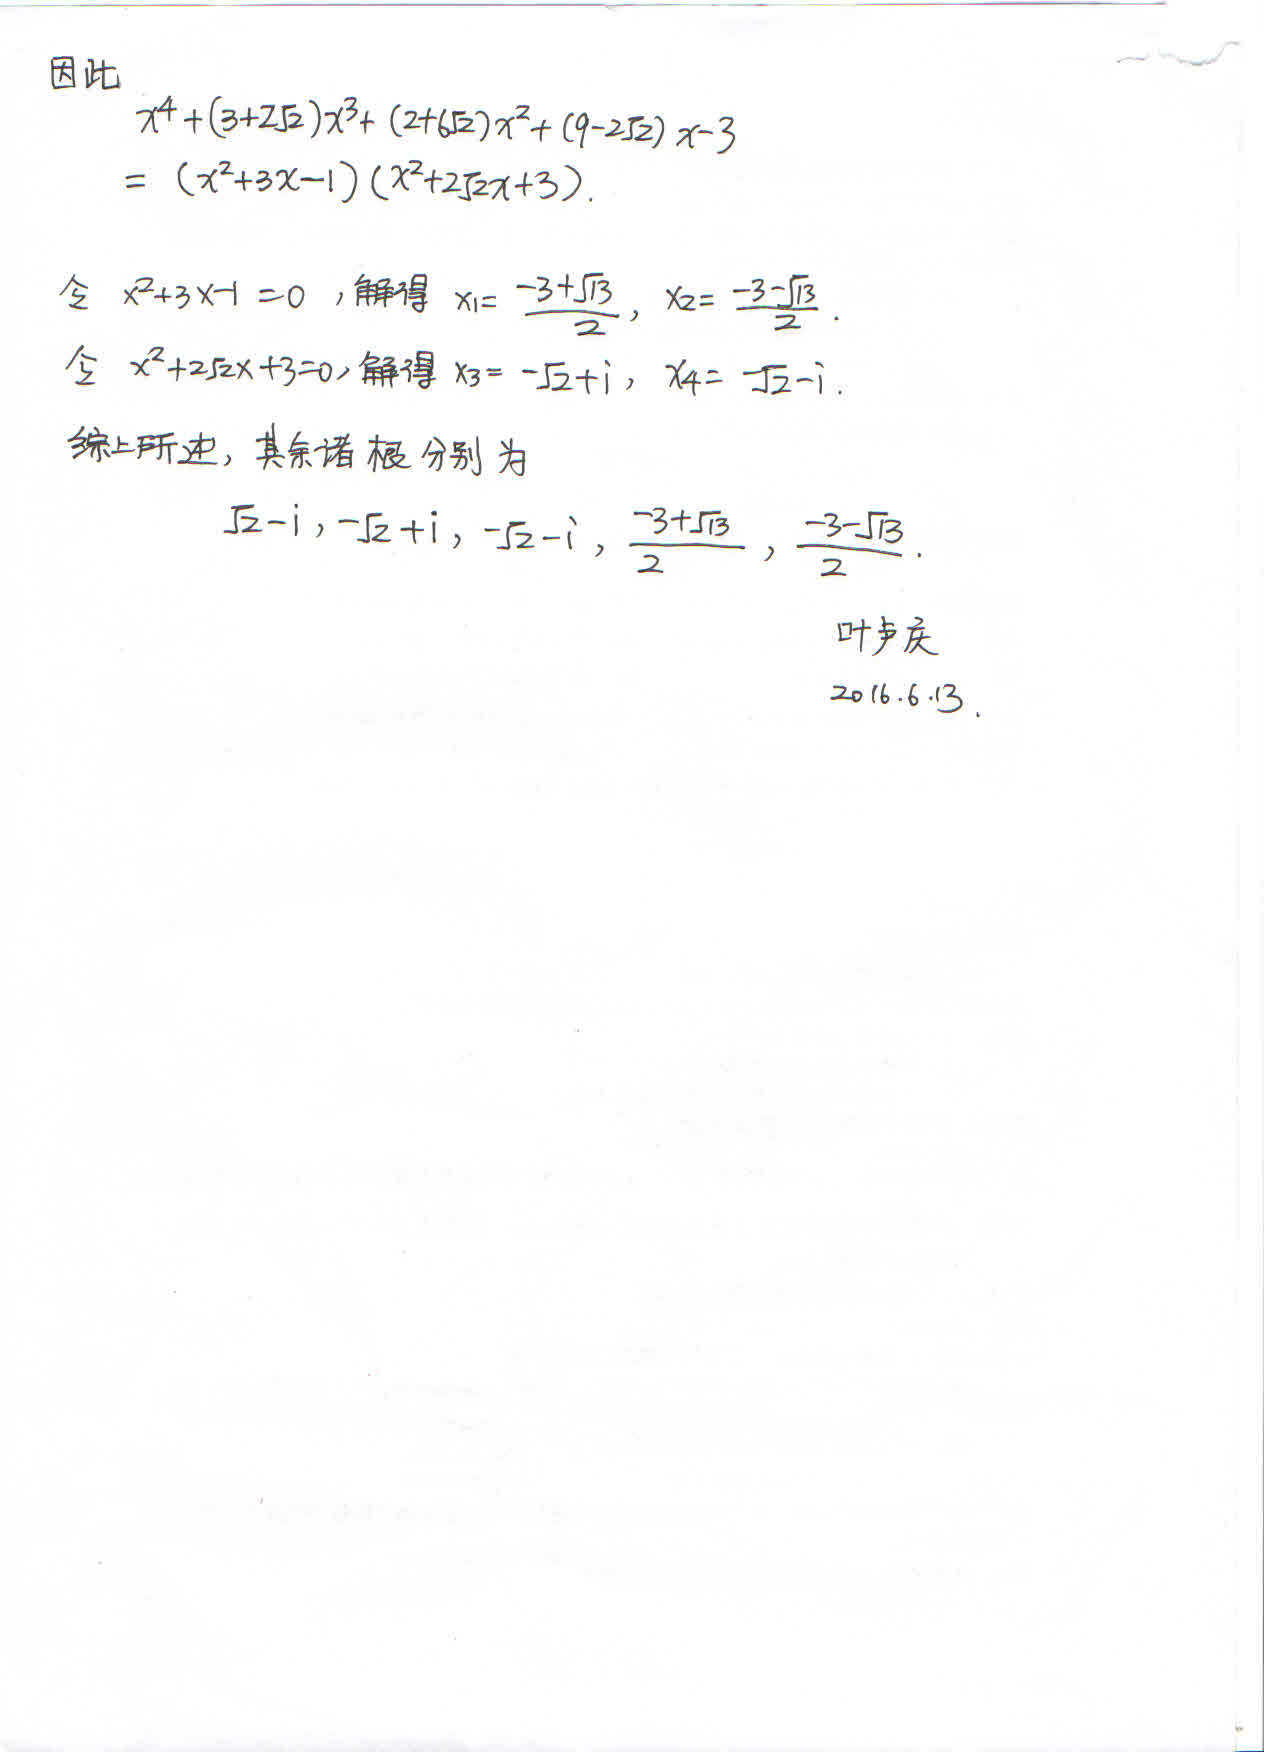 因此
x⁴+(3+2√2)x³+(2+6√2)x²+(9-2√2)x-3
=(x²+3x-1)(x²+2√2x+3).
令 x²+3x-1=0,解得 x₁=(-3+√13)/2, x₂=(-3-√13)/2.
令 x²+2√2x+3=0,解得 x₃=-√2+i, x₄=-√2-i.
综上所述,其余诸根分别为
√2-i, -√2+i, -√2-i, (-3+√13)/2, (-3-√13)/2.
叶卢庆
2016.6.13.